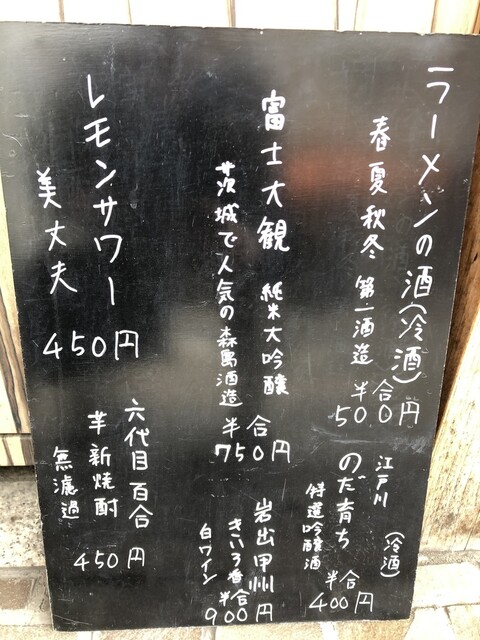 ラーメンの酒(冷酒)
春夏秋冬 第一酒造
半合
500円
江戸川
のだ育ち
(冷酒)
特選吟醸酒
半合
400円
富士大観 純米大吟醸
茨城で人気の森島酒造
半合
750円
岩出甲州
きいろ香
白ワイン
半合
900円
レモンサワー
美丈夫
450円
六代目百合
芋新焼酎
無濾過
450円